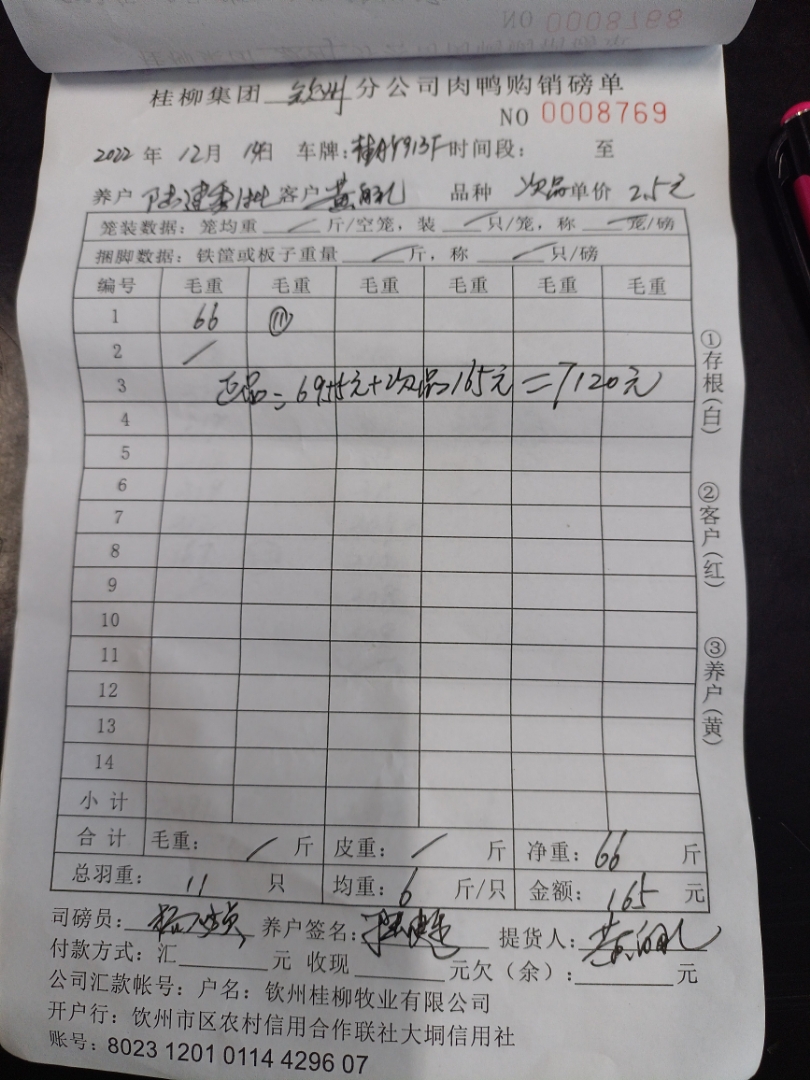 桂柳集团 钦州 分公司肉鸭购销磅单
NO 0008769
2022 年 12月 14日 车牌: 时间段: 至
养户 陆建 客户 黄 品种 次品 单价 2.5元
笼装数据: 笼均重 / 斤/空笼, 装 / 只/笼, 称 / 笼/磅
捆脚数据: 铁筐或板子重量 / 斤, 称 / 只/磅
编号 毛重 毛重 毛重 毛重 毛重 毛重
1 66 ⑪
2 /
3 正品=6955元+次品165元=7120元
4
5
6
7
8
9
10
11
12
13
14
小计
合计 毛重: / 斤 皮重: / 斤 净重: 66 斤
总羽重: 11 只 均重: 6 斤/只 金额: 165 元
司磅员: 养户签名: 提货人: 黄
付款方式: 汇 元 收现 元欠(余): 元
公司汇款帐号: 户名: 钦州桂柳牧业有限公司
开户行: 钦州市区农村信用合作联社大垌信用社
账号: 8023 1201 0114 4296 07
①存根(白)
②客户(红)
③养户(黄)